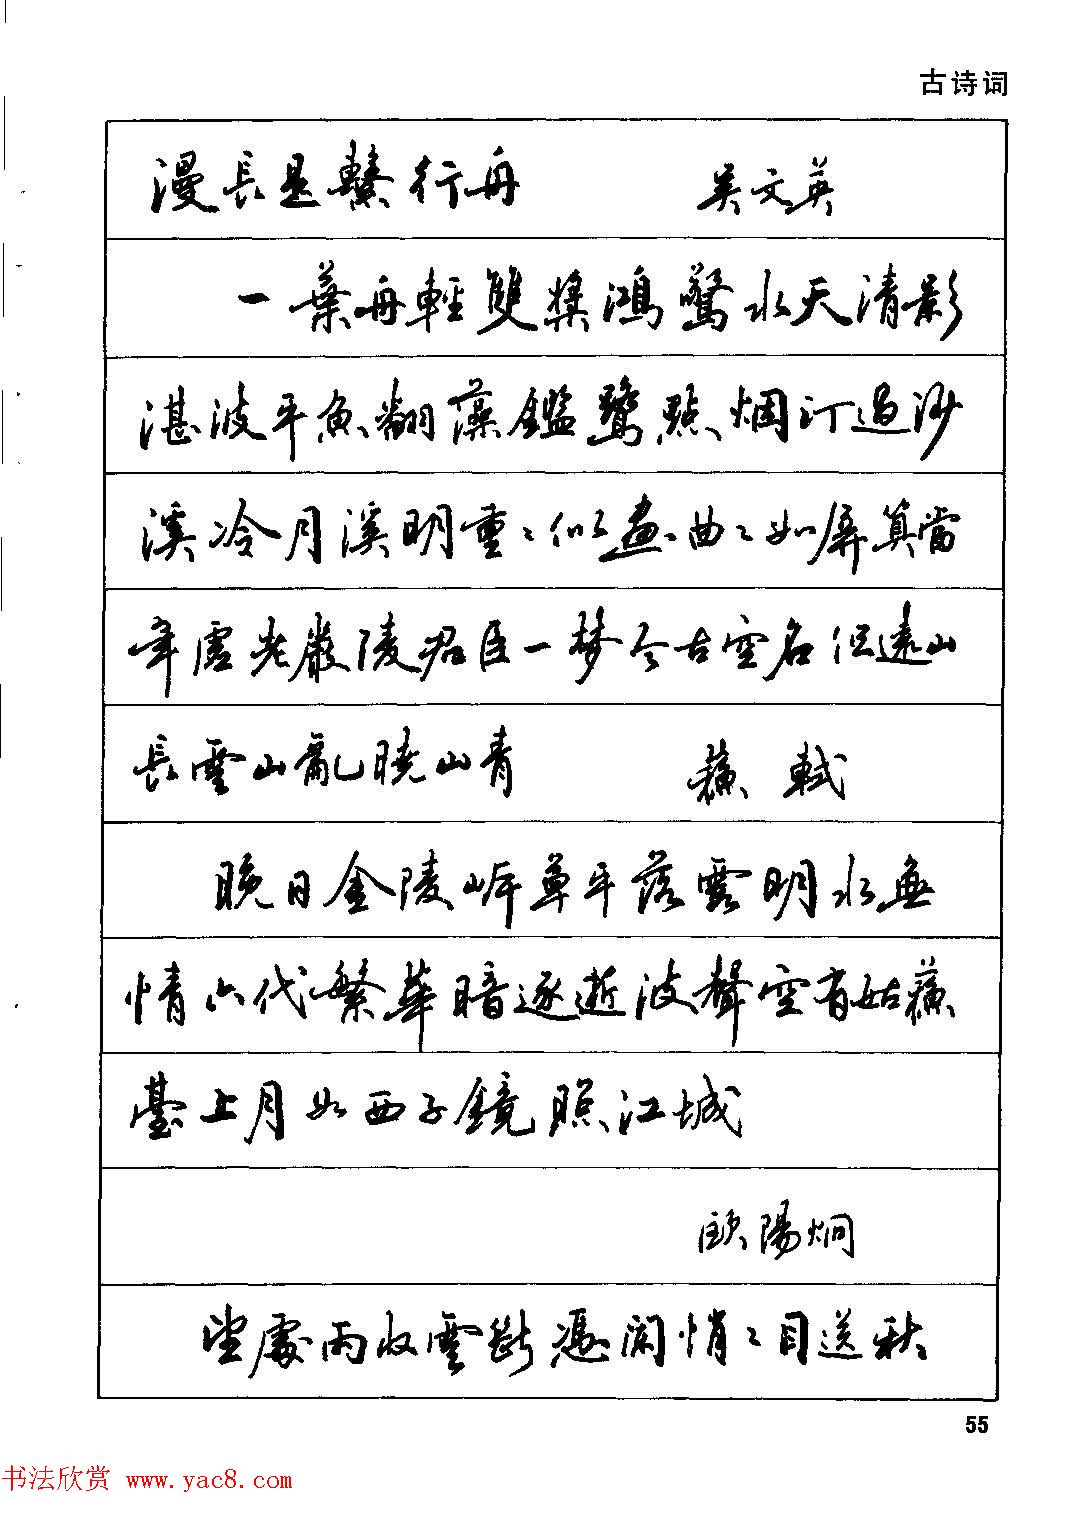 古诗词
漫長是繫行舟 吳文英
一葉舟輕雙槳鴻驚水天清影
湛波平魚翻藻鑑鷺點烟汀過沙
溪冷月溪明重〻似畫曲〻如屏算當
年虛老嚴陵君臣一夢今古空名但遠山
長雲山亂曉山青 蘇軾
晚日金陵岸草平落霞明水無
情六代繁華暗逐逝波聲空有姑蘇
臺上月如西子鏡照江城
歐陽炯
望處雨收雲斷憑闌悄〻目送秋
55
书法欣赏 www.yac8.com